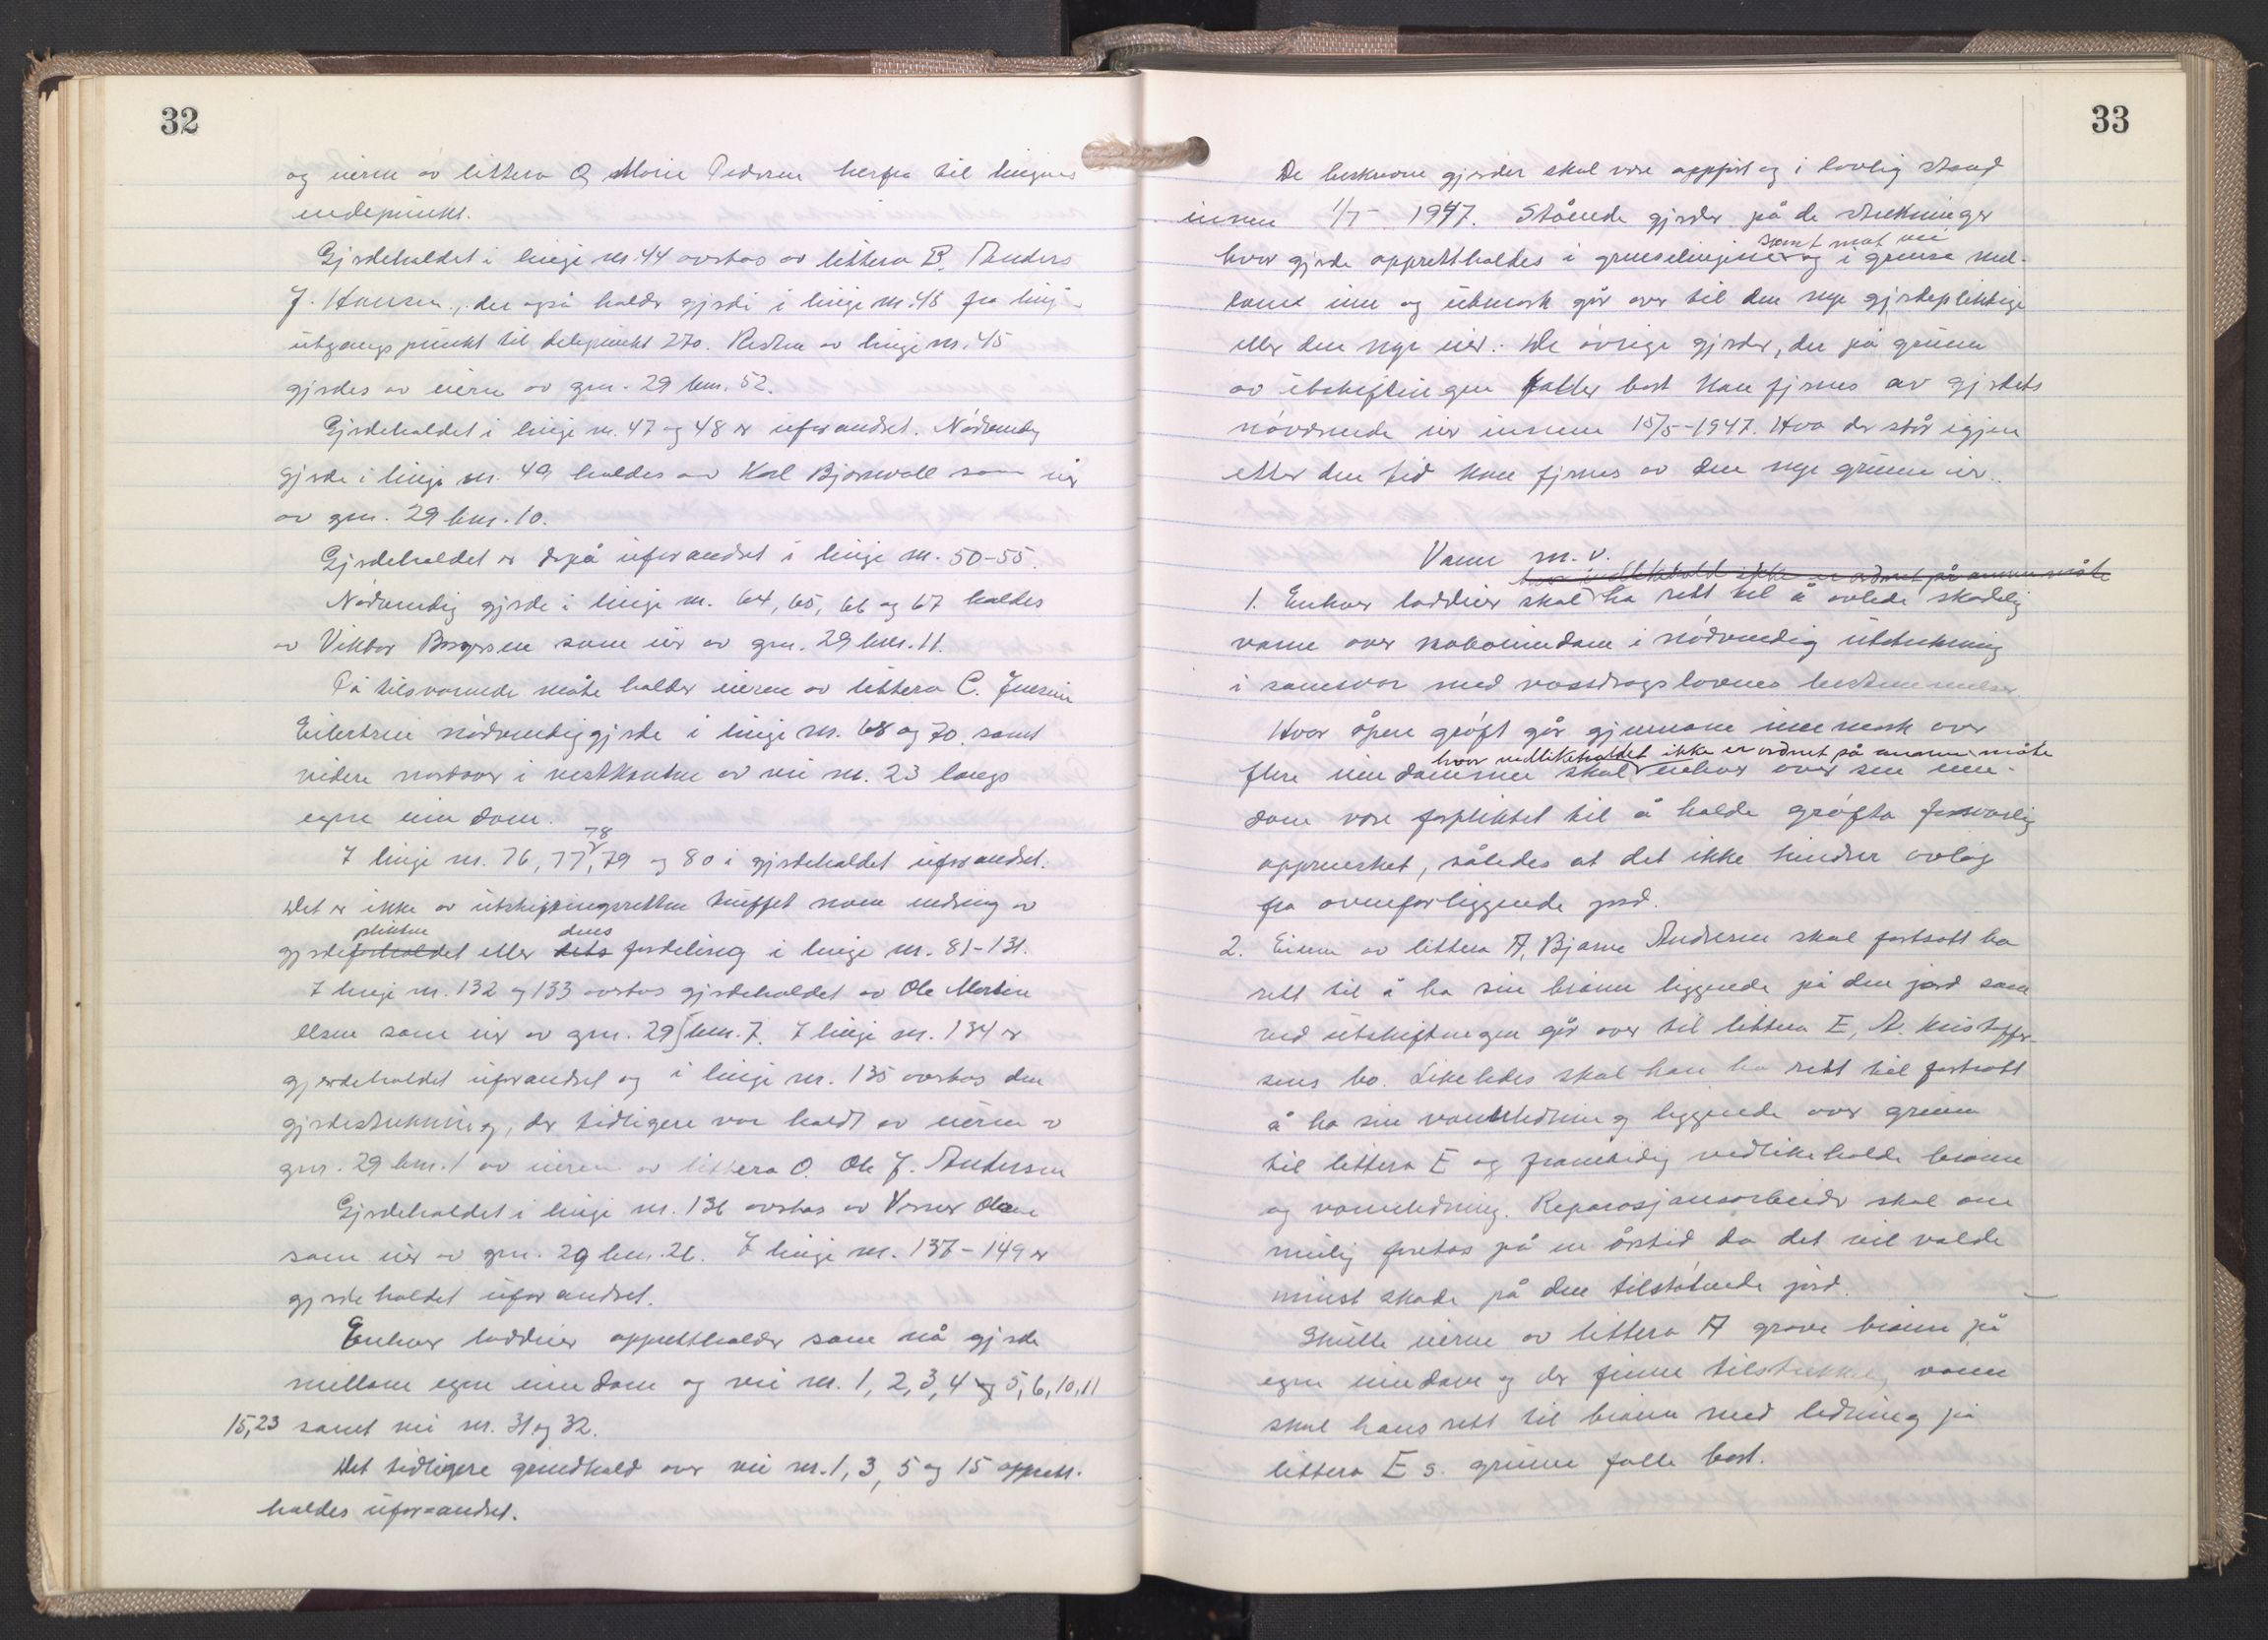 32
og eieren av littera Q Marie Pedersen herfra til linjens
endepunkt.
Gjerdeholdet i linje nr. 44 avstas av littera B. Anders
J. Hansen, der også holder gjerde i linje nr. 45 fra linj-
utgangspunkt til delepunkt 270. Resten av linje nr. 45
gjerdes av eieren av gnr. 29 bnr. 52.
Gjerdeholdet i linje nr. 47 og 48 er uforandret. Nødvendig
gjerde i linje nr. 49 holdes av Karl Bjørnvoll som eier
av gnr. 29 bnr. 10.
Gjerdeholdet er derpå uforandret i linje nr. 50-55.
Nødvendig gjerde i linje nr. 64, 65, 66 og 67 holdes
av Viktor Borgersen som eier av gnr. 29 bnr. 11.
På tilsvarende måte holder eieren av littera C. Jensine
Eilertsen nødvendig gjerde i linje nr. 68 og 70. samt
videre nordover i vestkanten av vei nr. 23 langs
egen eiendom.
78
I linje nr. 76, 77, 79 og 80 i gjerdeholdet uforandret.
Det er ikke av utskiftningsretten truffet noen endring av
plikten dens
gjerdeforholdet eller dets fordeling i linje nr. 81-131.
I linje nr. 132 og 133 avstas gjerdeholdet av Ole Martin
Olsen som eier av gnr. 29 bnr. 7. I linje nr. 134 er
gjerdeholdet uforandret og i linje nr. 135 avstas den
gjerdestrekning, der tidligere var holdt av eieren av
gnr. 29 bnr. 1 av eieren av littera O. Ole J. Andersen
Gjerdeholdet i linje nr. 136 avstas av Verner Olsen
som eier av gnr. 29 bnr. 26. I linje nr. 137-149 er
gjerdeholdet uforandret.
Enhver loddeier opprettholder som nå gjerde
mellom egen eiendom og vei nr. 1, 2, 3, 4 og 5, 6, 10, 11
15, 23 samt vei nr. 31 og 32.
Det tidligere grindhold over vei nr. 1, 3, 5 og 15 opprett-
holdes uforandret.
33
De beskrevne gjerder skal være oppført og i lovlig stand
innen 1/7- 1947. Stående gjerder på de strekninger
samt mot vei
hvor gjerde opprettholdes i grenselinjene og i grense mel-
lom inn og utmark går over til den nye gjerdepliktige
eller den nye eier. De øvrige gjerder, der på grunn
av utskiftningen faller bort kan fjernes av gjerdets
nåværende eier innen 15/5-1947. Hva der står igjen
etter den tid kan fjernes av den nye grunneier.
Vann m.v.
hvor vedlikehold ikke er ordnet på annen måte
1. Enhver loddeier skal ha rett til å avlede skadelig
vann over naboeiendom i nødvendig utstrekning
i samsvar med vassdragslovens bestemmelser
Hvor åpen grøft går gjennom innmark over
hvor vedlikeholdet ikke er ordnet på annen måte
flere eiendommer skal enhver over sin eien-
dom være forpliktet til å holde grøfta forsvarlig
opprensket, således at det ikke hindrer avløp
fra ovenforliggende jord.
2. Eieren av littera A, Bjarne Andersen skal fortsatt ha
rett til å ha sin brønn liggende på den jord som
ved utskiftningen går over til littera E, A. Kristoffer-
sens bo. Likeledes skal han ha rett til fortsatt
å ha sin vannledning liggende over grunn
til littera E og framtidig vedlikeholde brønn
og vannledning. Reparasjonsarbeider skal om
mulig foretas på en årstid da det vil volde
minst skade på den tilstøtende jord.
Skulle eieren av littera A grave brønn på
egen eiendom og der finne tilstrekkelig vann
skal hans rett til brønn med ledning på
littera E s. grunn falle bort.